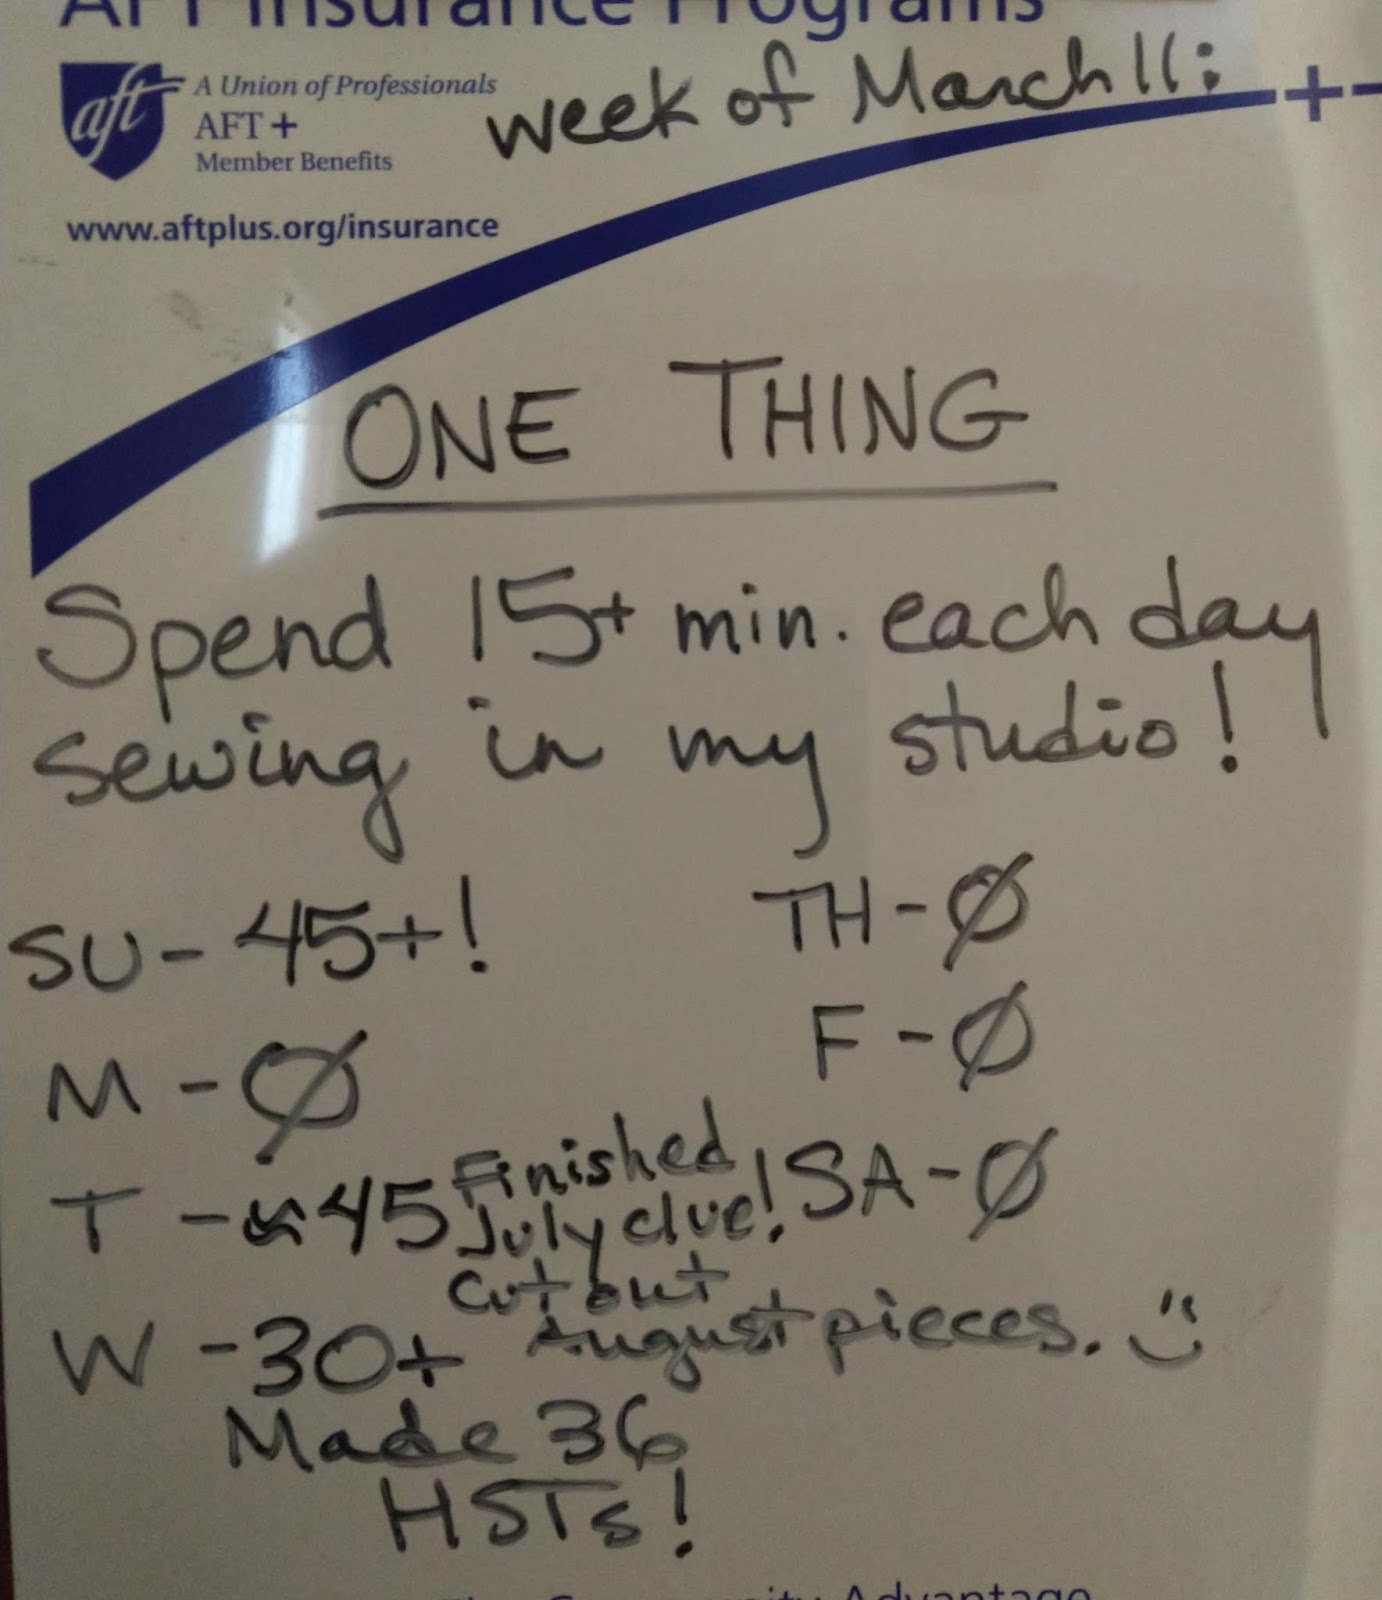 AFT Insurance Programs
aft
A Union of Professionals
AFT +
Member Benefits
www.aftplus.org/insurance
week of March 11:
ONE THING
Spend 15+ min. each day
sewing in my studio!
SU - 45+!
M - Ø
T - ≈45 Finished
July clue!
W - 30+ Cut out
August pieces.
Made 36
HSTs!
TH - Ø
F - Ø
SA - Ø
Advantage